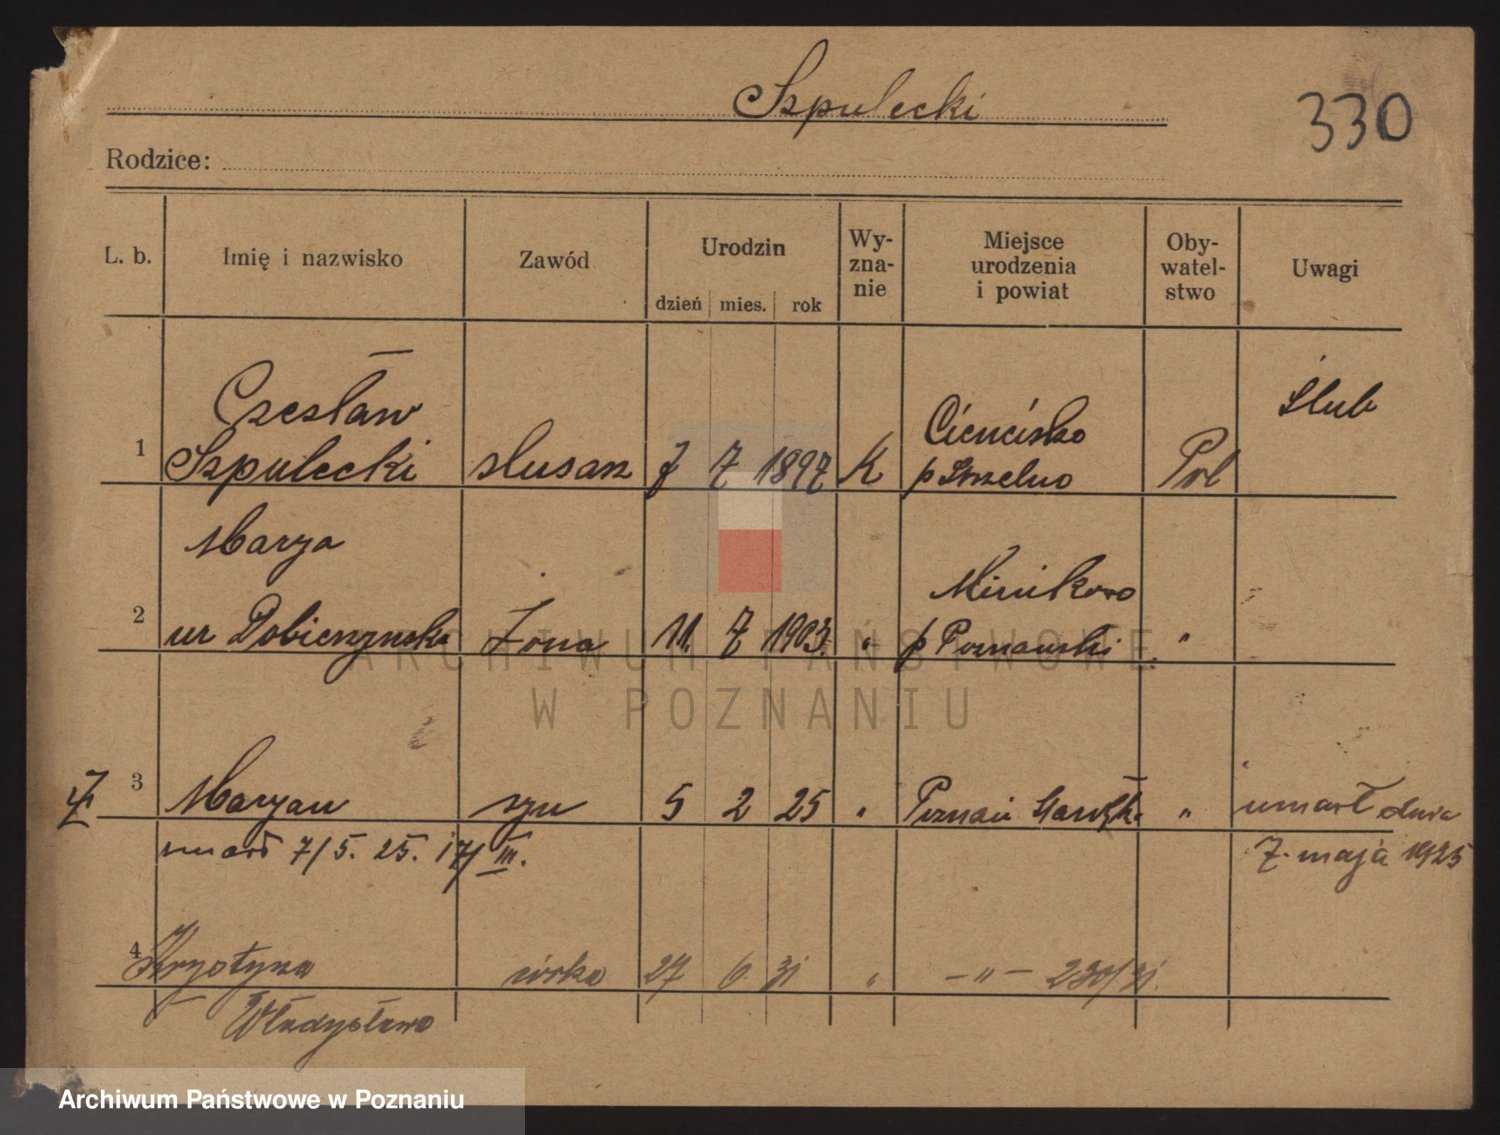 Szpulecki
330
Rodzice:
L. b. Imię i nazwisko Zawód Urodzin dzień mies. rok Wy-zna-nie Miejsce urodzenia i powiat Oby-watel-stwo Uwagi
Czesław Ciencisko Ślub
1 Szpulecki ślusarz 7 7 1897 K p Strzelno Pol
Marya Minikowo
2 ur Dobierzynska Żona 11. 7 1903. " p Poznański "
ARCHIWUM PAŃSTWOWE
W POZNANIU
3 Maryan syn 5 2 25 " Poznań " umarł dnia
umarł 7/5. 25. 17/III. 7. maja 1925
4 Krystyna córka 27 6. 31 " — " — 230/31.
Władysława
Archiwum Państwowe w Poznaniu